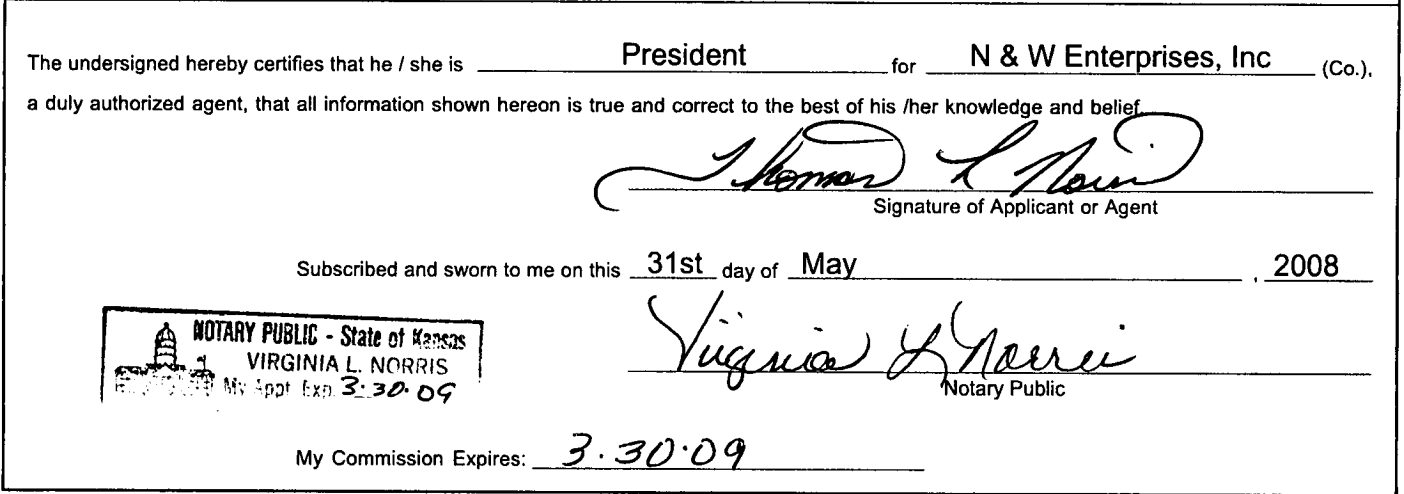 The undersigned hereby certifies that he / she is President for N & W Enterprises, Inc (Co.),
a duly authorized agent, that all information shown hereon is true and correct to the best of his /her knowledge and belief.
Thomas L Norris
Signature of Applicant or Agent
Subscribed and sworn to me on this 31st day of May , 2008
NOTARY PUBLIC - State of Kansas
VIRGINIA L. NORRIS
My Appt. Exp. 3.30.09
Virginia L Norris
Notary Public
My Commission Expires: 3.30.09